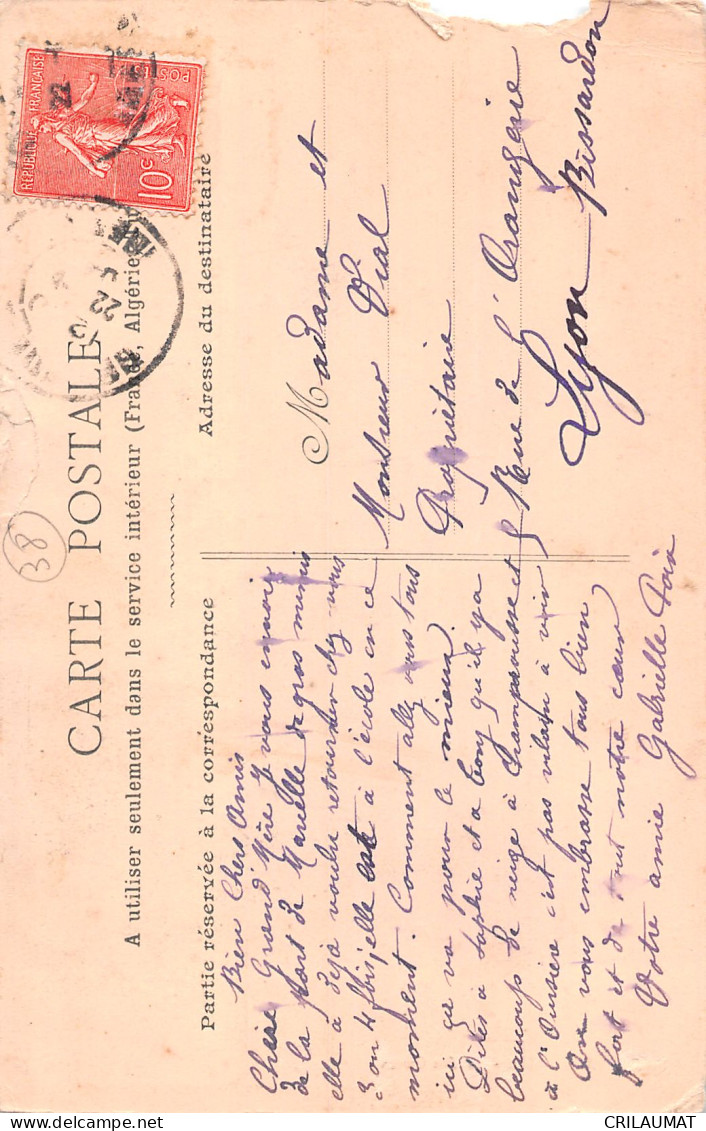 CARTE POSTALE
A utiliser seulement dans le service intérieur (France, Algérie
Partie réservée à la correspondance
Adresse du destinataire
REPUBLIQUE FRANÇAISE
POSTES
10c
38
Bien Chers Amis
Chère Grand'Mère je vous envoie
de la part de Marcelle de gros mimis
elle à déjà voulu retourner chez vous
3 ou 4 fois, elle est à l'école en ce
moment. Comment allez vous tous
ici ça va pour le mieux.
Dites à Sophie et a Leon qu'il y a
beaucoup de neige à Champrousse et
à l'Oursière c'est pas vilain à voir
On vous embrasse tous bien
fort et de tout notre cœur
Votre amie Gabrielle
Madame et
Monsieur Vial
Propriétaire
Rue de l'Orangerie
Lyon Bissardon
CRILAUMAT